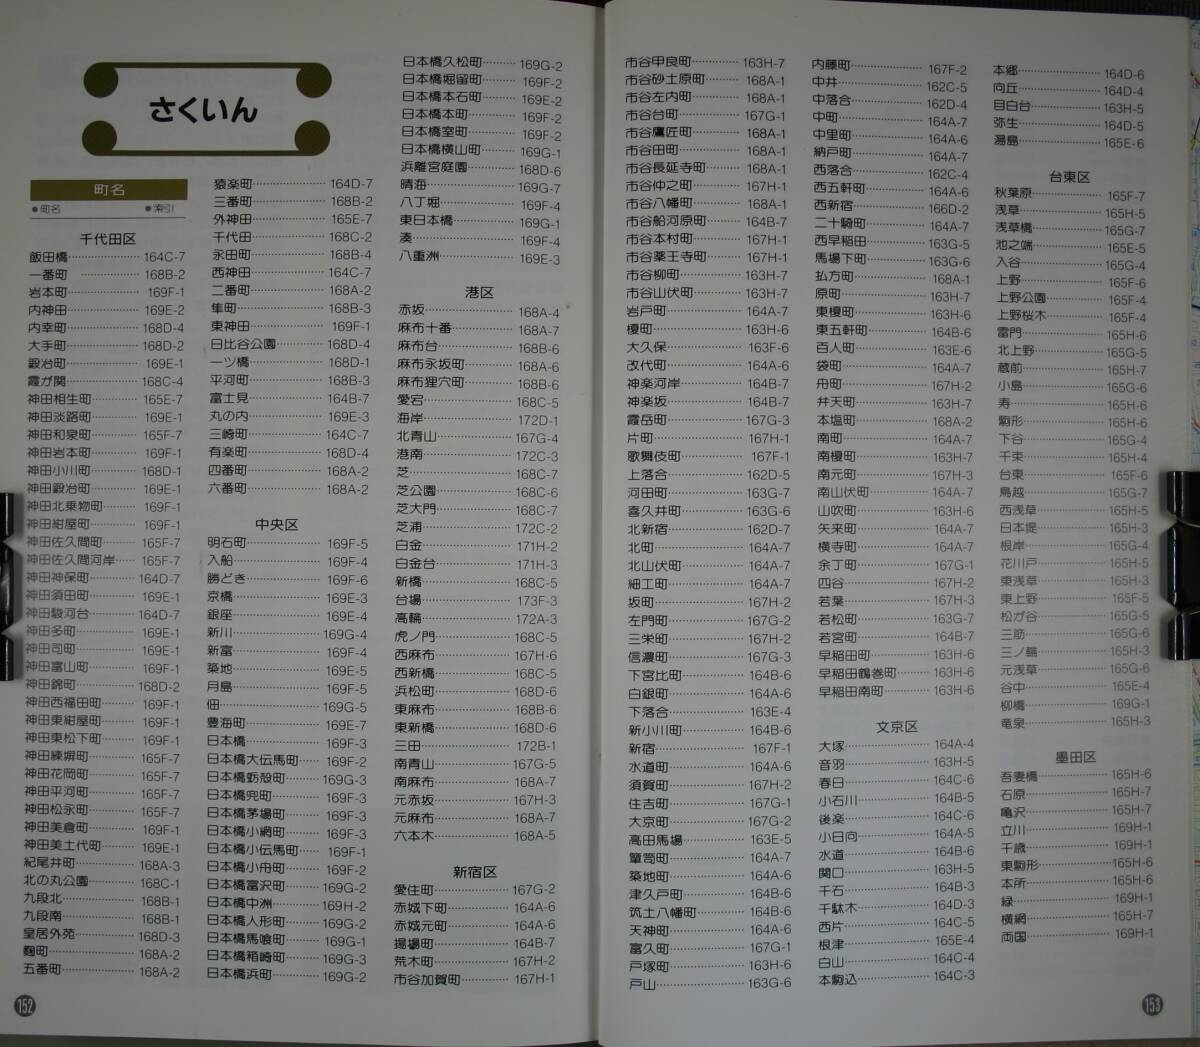 さくいん
町名
●町名 ●索引
千代田区
飯田橋 164C-7
一番町 168B-2
岩本町 169F-1
内神田 169E-2
内幸町 168D-4
大手町 168D-2
鍛冶町 169E-1
霞が関 168C-4
神田相生町 165E-7
神田淡路町 169E-1
神田和泉町 165F-7
神田岩本町 169F-1
神田小川町 168D-1
神田鍛冶町 169E-1
神田北乗物町 169F-1
神田紺屋町 169F-1
神田佐久間町 165F-7
神田佐久間河岸 165F-7
神田神保町 164D-7
神田須田町 169E-1
神田駿河台 164D-7
神田多町 169E-1
神田司町 169E-1
神田富山町 169F-1
神田錦町 168D-2
神田西福田町 169F-1
神田東紺屋町 169F-1
神田東松下町 169F-1
神田練塀町 165F-7
神田花岡町 165F-7
神田平河町 165F-7
神田松永町 165F-7
神田美倉町 169F-1
神田美土代町 169E-1
紀尾井町 168A-3
北の丸公園 168C-1
九段北 168B-1
九段南 168B-1
皇居外苑 168D-3
麹町 168A-2
五番町 168A-2
猿楽町 164D-7
三番町 168B-2
外神田 165E-7
千代田 168C-2
永田町 168B-4
西神田 164C-7
二番町 168A-2
隼町 168B-3
東神田 169F-1
日比谷公園 168D-4
一ツ橋 168D-1
平河町 168B-3
富士見 164B-7
丸の内 169E-3
三崎町 164C-7
有楽町 168D-4
四番町 168A-2
六番町 168A-2
中央区
明石町 169F-5
入船 169F-4
勝どき 169F-6
京橋 169E-3
銀座 169E-4
新川 169G-4
新富 169F-4
築地 169E-5
月島 169F-5
佃 169G-5
豊海町 169E-7
日本橋 169F-3
日本橋大伝馬町 169F-2
日本橋蛎殻町 169G-3
日本橋兜町 169F-3
日本橋茅場町 169F-3
日本橋小網町 169F-3
日本橋小伝馬町 169F-1
日本橋小舟町 169F-2
日本橋富沢町 169G-2
日本橋中洲 169H-2
日本橋人形町 169G-2
日本橋馬喰町 169G-1
日本橋箱崎町 169G-3
日本橋浜町 169G-2
日本橋久松町 169G-2
日本橋堀留町 169F-2
日本橋本石町 169E-2
日本橋本町 169F-2
日本橋室町 169F-2
日本橋横山町 169G-1
浜離宮庭園 168D-6
晴海 169G-7
八丁堀 169F-4
東日本橋 169G-1
湊 169F-4
八重洲 169E-3
港区
赤坂 168A-4
麻布十番 168A-7
麻布台 168B-6
麻布永坂町 168A-6
麻布狸穴町 168B-6
愛宕 168C-5
海岸 172D-1
北青山 167G-4
港南 172C-3
芝 168C-7
芝公園 168C-6
芝大門 168C-7
芝浦 172C-2
白金 171H-2
白金台 171H-3
新橋 168C-5
台場 173F-3
高輪 172A-3
虎ノ門 168C-5
西麻布 167H-6
西新橋 168C-5
浜松町 168D-6
東麻布 168B-6
東新橋 168D-6
三田 172B-1
南青山 167G-5
南麻布 168A-7
元赤坂 167H-3
元麻布 168A-7
六本木 168A-5
新宿区
愛住町 167G-2
赤城下町 164A-6
赤城元町 164A-6
揚場町 164B-7
荒木町 167H-2
市谷加賀町 167H-1
152
市谷甲良町 163H-7
市谷砂土原町 168A-1
市谷左内町 168A-1
市谷台町 167G-1
市谷鷹匠町 168A-1
市谷田町 168A-1
市谷長延寺町 168A-1
市谷仲之町 167H-1
市谷八幡町 168A-1
市谷船河原町 164B-7
市谷本村町 167H-1
市谷薬王寺町 167H-1
市谷柳町 163H-7
市谷山伏町 163H-7
岩戸町 164A-7
榎町 163H-6
大久保 163F-6
改代町 164A-6
神楽河岸 164B-7
神楽坂 164B-7
霞岳町 167G-3
片町 167H-1
歌舞伎町 167F-1
上落合 162D-5
河田町 163G-7
喜久井町 163G-6
北新宿 162D-7
北町 164A-7
北山伏町 164A-7
細工町 164A-7
坂町 167H-2
左門町 167G-2
三栄町 167H-2
信濃町 167G-3
下宮比町 164B-6
白銀町 164A-6
下落合 163E-4
新小川町 164B-6
新宿 167F-1
水道町 164A-6
須賀町 167H-2
住吉町 167G-1
大京町 167G-2
高田馬場 163E-5
箪笥町 164A-7
築地町 164A-6
津久戸町 164B-6
筑土八幡町 164B-6
天神町 164A-6
富久町 167G-1
戸塚町 163H-6
戸山 163G-6
内藤町 167F-2
中井 162C-5
中落合 162D-4
中町 164A-7
中里町 164A-6
納戸町 164A-7
西落合 162C-4
西五軒町 164A-6
西新宿 166D-2
二十騎町 164A-7
西早稲田 163G-5
馬場下町 163G-6
払方町 168A-1
原町 163H-7
東榎町 163H-6
東五軒町 164B-6
百人町 163E-6
袋町 164A-7
舟町 167H-2
弁天町 163H-7
本塩町 168A-2
南町 164A-7
南榎町 163H-7
南元町 167H-3
南山伏町 164A-7
山吹町 163H-6
矢来町 164A-7
横寺町 164A-7
余丁町 167G-1
四谷 167H-2
若葉 167H-3
若松町 163G-7
若宮町 164B-7
早稲田町 163H-6
早稲田鶴巻町 163H-6
早稲田南町 163H-6
文京区
大塚 164A-4
音羽 163H-5
春日 164C-6
小石川 164B-5
後楽 164C-6
小日向 164A-5
水道 164B-6
関口 163H-5
千石 164B-3
千駄木 164D-3
西片 164C-5
根津 165E-4
白山 164C-4
本駒込 164C-3
本郷 164D-6
向丘 164D-4
目白台 163H-5
弥生 164D-5
湯島 165E-6
台東区
秋葉原 165F-7
浅草 165H-5
浅草橋 165G-7
池之端 165E-5
入谷 165G-4
上野 165F-6
上野公園 165F-4
上野桜木 165F-4
雷門 165H-6
北上野 165G-5
蔵前 165H-7
小島 165G-6
寿 165H-6
駒形 165H-6
下谷 165G-4
千束 165H-4
台東 165F-6
鳥越 165G-7
西浅草 165H-5
日本堤 165H-3
根岸 165G-4
花川戸 165H-5
東浅草 165H-3
東上野 165F-5
松が谷 165G-5
三筋 165G-6
三ノ輪 165H-3
元浅草 165G-6
谷中 165E-4
柳橋 169G-1
竜泉 165H-3
墨田区
吾妻橋 165H-6
石原 165H-7
亀沢 165H-7
立川 169H-1
千歳 169H-1
東駒形 165H-6
本所 165H-6
緑 169H-1
横網 165H-7
両国 169H-1
153